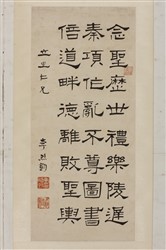 念聖歷世禮樂陵遲
秦項作亂不尊圖書
倍道畔德離敗聖輿
仁兄